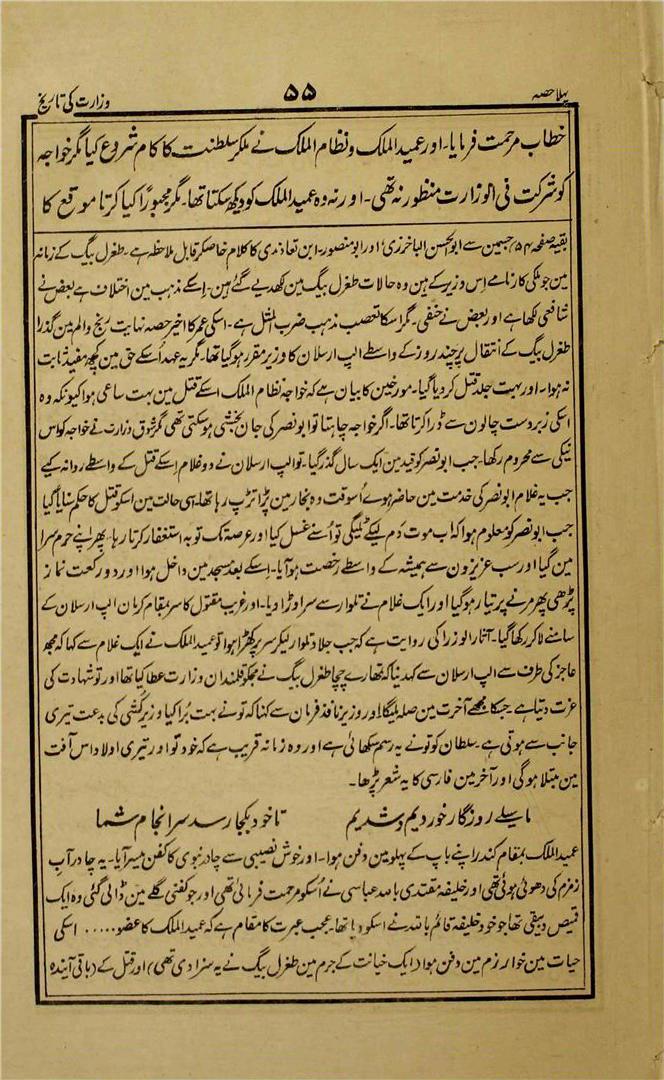 پہلا حصہ ۵۵ وزارت کی تاریخ
خطاب مرحمت فرمایا۔ اور عمید الملک و نظام الملک نے ملکر سلطنت کا کام شروع کیا مگر خواجہ
کو شرکت فی الوزارت منظور نہ تھی۔ اور نہ وہ عمید الملک کو دیکھ سکتا تھا۔ مگر مجبوراً کیا کرتا موقع کا
بقیہ صفحہ ۵۴/ جسمین سے ابوالحسن الباخرزی/ اور ابو منصور۔ ابن کا کلام خاصکر قابل ملاحظہ ہے۔ طغرل بیگ کے زمانہ
مین جو ملکی کارنامے اِس وزیر کے ہین وہ حالات طغرل بیگ مین لکھدیے گئے ہین۔ اِسکے مذہب مین اختلاف ہے بعض نے
شافعی لکھا ہے اور بعض نے حنفی۔ مگر اسکا تعصب مذہب ضرب المثل ہے۔ اسکی عمر کا اخیر حصہ نہایت رنج والم مین گذرا
طغرل بیگ کے انتقال پر چند روز کے واسطے الپ ارسلان کا وزیر مقرر ہو گیا تھا۔ مگر یہ عہد اُسکے حق مین کچھ مفید ثابت
نہ ہوا۔ اور بہت جلد قتل کر دیا گیا۔ مورخین کا بیان ہے کہ خواجہ نظام الملک اسکے قتل مین بہت ساعی ہوا کیونکہ وہ
اسکی زبردست چالون سے ڈرا کرتا تھا۔ اگر خواجہ چاہتا تو ابو نصر کی جان بخشی ہو سکتی تھی مگر شوق وزارت نے خواجہ کو اس
نیکی سے محروم رکھا۔ جب ابو نصر کو قید مین ایک سال گذر گیا۔ تو الپ ارسلان نے دو غلام اِسکے قتل کے واسطے روانہ کیے
جب یہ غلام ابو نصر کی خدمت مین حاضر ہوے اُسوقت وہ بخار مین پڑا تڑپ رہا تھا۔ اسی حالت مین اسکو قتل کا حکم سنایا گیا
جب ابو نصر کو معلوم ہوا کہ اب موت دم لیکے ٹلیگی تو اُسنے غسل کیا اور عرصہ تک توبہ استغفار کرتا رہا۔ پھر اپنے حرم سرا
مین گیا اور سب عزیزون سے ہمیشہ کے واسطے رخصت ہو آیا۔ اِسکے بعد مسجد مین داخل ہوا اور دو رکعت نماز
پڑھی پھر مرنے پر تیار ہو گیا اور ایک غلام نے تلوار سے سر اوڑا دیا۔ اور غریب مقتول کا سر بمقام کرمان الپ ارسلان کے
سامنے لاکر رکھا گیا۔ آثار الوزرا کی روایت ہے کہ جب جلاد تلوار لیکر سر پر کھڑا ہوا تو عمید الملک نے ایک غلام سے کہا کہ مجھ
عاجز کی طرف سے الپ ارسلان سے کہدینا کہ تمھارے چچا طغرل بیگ نے مجھکو قلمدان وزارت عطا کیا تھا اور تو شہادت کی
عزت دیتا ہے۔ جسکا مجھے آخرت مین صلہ ملیگا۔ اور وزیر نافذ فرمان سے کہنا کہ تو نے بہت بُرا کیا وزیر کُشی کی بدعت تیری
جانب سے ہوتی ہے۔ سلطان کو تو نے یہ رسم سکھائی ہے اور وہ زمانہ قریب ہے کہ خود تو اور تیری اولاد اس آفت
مین مبتلا ہو گی اور آخر مین فارسی کا یہ شعر پڑھا۔
ما سیلے روزگار خوردیم و شدیم تا خود بکجا رسد سر انجام شما
عمید الملک بمقام کندر اپنے باپ کے پہلو مین دفن ہوا۔ اور خوش نصیبی سے چادر نبوی کا کفن میسر آیا۔ یہ چادر آبِ
زمزم کی دھوئی ہوئی تھی اور خلیفہ مقتدی باللہ عباسی نے اُسکو مرحمت فرمائی تھی اور جو کفنی گلے مین ڈالی گئی وہ ایک
قمیص دبیقی تھا جو خود خلیفہ قائم باللہ نے اسکو دیا تھا۔ عجب عبرت کا مقام ہے کہ عمید الملک کا عضو ..... اسکی
حیات مین خوارزم مین دفن ہوا (ایک خیانت کے جرم مین طغرل بیگ نے یہ سزا دی تھی) اور قتل کے (باقی آیندہ